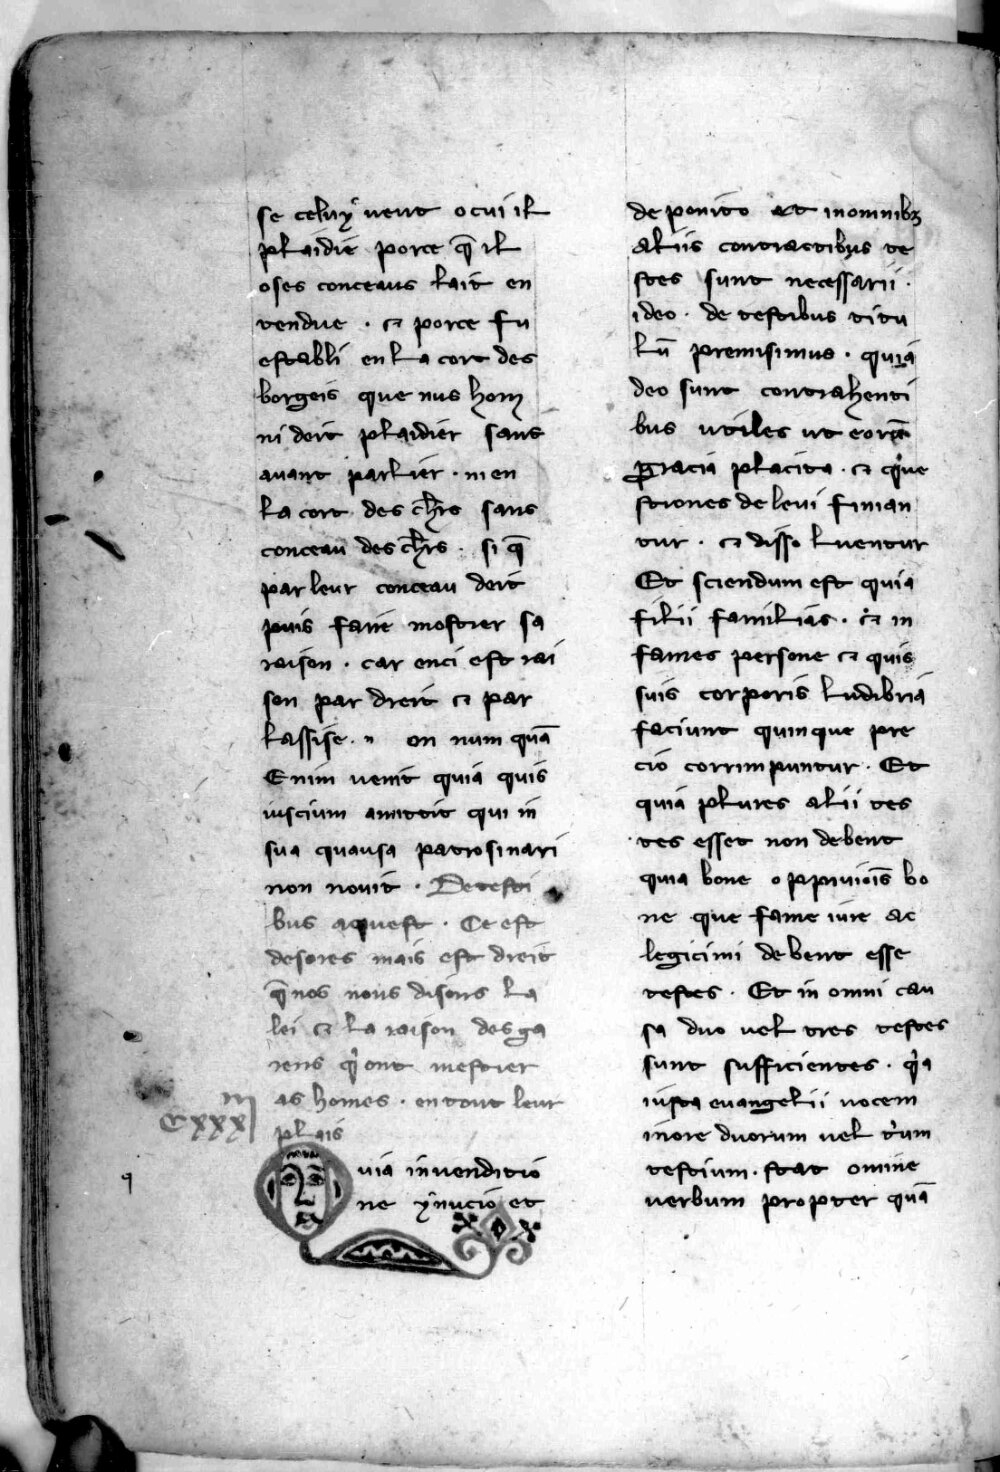 se celuy veut o cui il
plaidie porce q̄ il
oses conceaus lait en
tendue . et porce fu
establi en la cort des
borgeis que nus hom
ni doit plaidier sans
avant parlier . ni en
la cort des ch̄rs sans
conceau des ch̄rs . si q̄
par leur conceau doit
puis faire mostrer sa
raison . car enci est rai
son par dreit et par
lassise . on num quā
Enim venit quia quis
iuscium amittit qui in
sua quausa patrosinari
non novit . De testi
bus aquest . Ce est
desores mais est dreit
q̄ nos nous disons la
lei et la raison des ga
rens q̇ ont mestier
as homes . en tout leur
plais
CXXXIIII
Quia in venditio
ne ynucio et
de ponito et in omnibꝫ
aliis contractibus te
stes sunt necessarii .
ideo . de testibus titu
lū premisimus . quia
deo sunt contrahenti
bus utiles ut eorum
gracia placita . et que
stiones de levi finian
tur . et disso luentur
Et sciendum est quia
filii familias . et in
fames persone et quis
suis corporis ludibria
faciunt quinque pre
cio corrimpuntur . Et
quia plures alii tes
tes esset non debent
quia bone oppiniois bo
ne que fame iure ac
legicimi debent esse
testes . Et in omni cau
sa duo vel tres testes
sunt sufficientes . q̇a
iusta euangelii vocem
inore duorum vel t̉ium
testium . stat omine
verbum propter quā